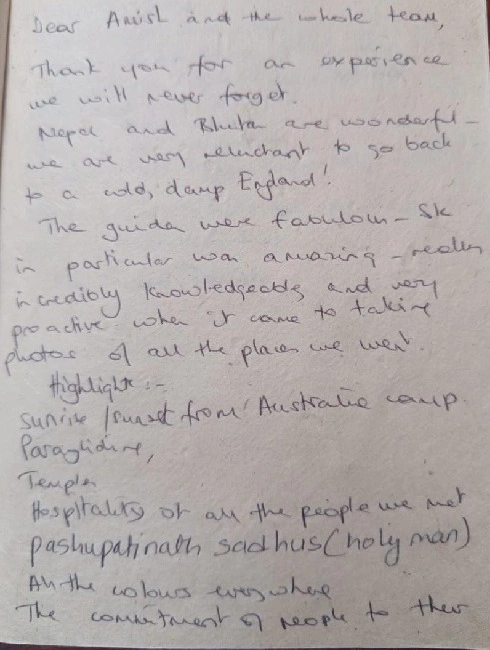 Dear Amish and the whole team,
Thank you for an experience
we will never forget.
Nepal and Bhutan are wonderful -
we are very reluctant to go back
to a cold, damp England!
The guides were fabulous - SK
in particular was amazing - really
incredibly knowledgeable and very
proactive when it came to taking
photos of all the places we went.
Highlights :-
sunrise / sunset from Australia camp.
Paragliding,
Temples
Hospitality of all the people we met
pashupatinath sadhus (holy man)
All the colours everywhere
The commitment of people to their